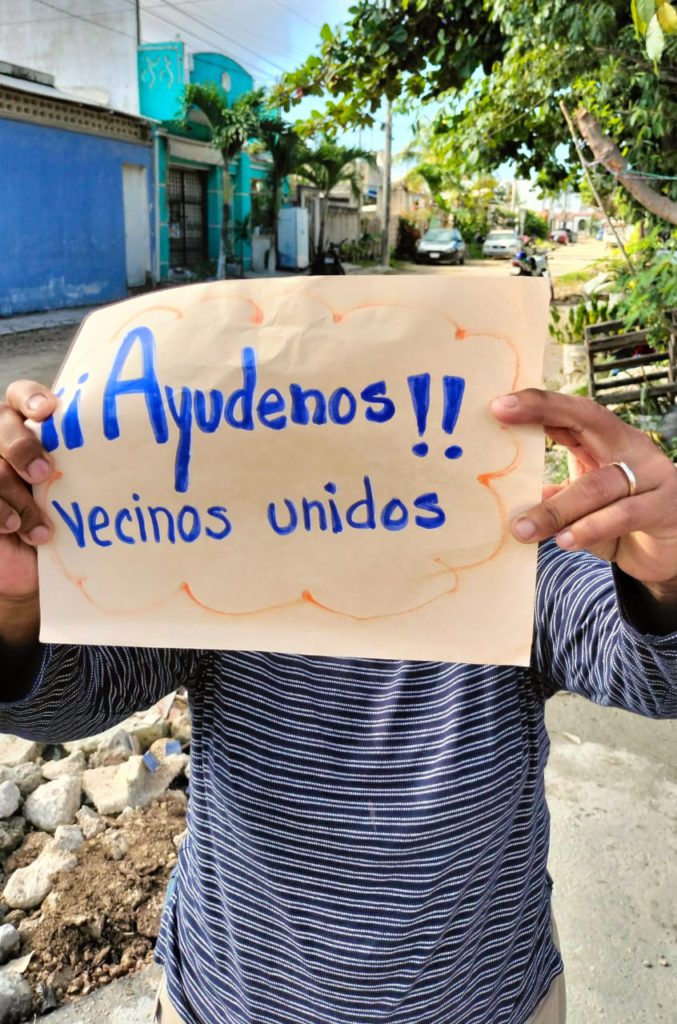 ¡¡Ayudenos!!
vecinos unidos